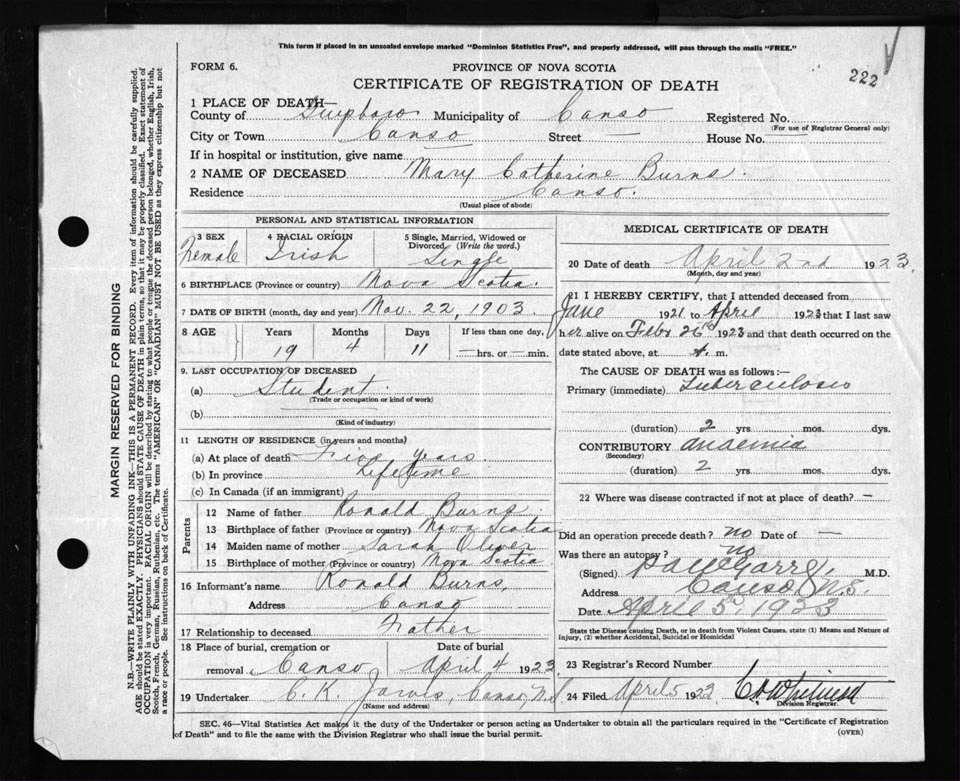 This form if placed in an unsealed envelope marked "Dominion Statistics Free", and properly addressed, will pass through the mails "FREE."
FORM 6.
PROVINCE OF NOVA SCOTIA
222
CERTIFICATE OF REGISTRATION OF DEATH
1 PLACE OF DEATH—
County of Municipality of Canso Registered No.
(For use of Registrar General only)
City or Town Canso Street — House No.
If in hospital or institution, give name
2 NAME OF DECEASED Mary Catherine Burns.
Residence Canso.
(Usual place of abode)
PERSONAL AND STATISTICAL INFORMATION
3 SEX Female
4 RACIAL ORIGIN Irish
5 Single, Married, Widowed or Divorced (Write the word.) Single
6 BIRTHPLACE (Province or country) Nova Scotia.
7 DATE OF BIRTH (month, day and year) Nov. 22, 1903.
8 AGE Years Months Days If less than one day,
19 4 11 — hrs. or — min.
9. LAST OCCUPATION OF DECEASED
(a) Student.
(Trade or occupation or kind of work)
(b)
(Kind of industry)
11 LENGTH OF RESIDENCE (in years and months)
(a) At place of death Five years.
(b) In province Lifetime
(c) In Canada (if an immigrant)
Parents
12 Name of father Ronald Burns.
13 Birthplace of father (Province or country) Nova Scotia
14 Maiden name of mother Sarah Oliver
15 Birthplace of mother (Province or country) Nova Scotia.
16 Informant's name Ronald Burns,
Address Canso
17 Relationship to deceased Father
18 Place of burial, cremation or removal Canso
Date of burial April 4 1923
19 Undertaker C. K. Jarvis, Canso, N.S
(Name and address)
MEDICAL CERTIFICATE OF DEATH
20 Date of death April 2nd 1923.
(Month, day and year)
21 I HEREBY CERTIFY, that I attended deceased from
June 1921 to April 1923 that I last saw
her alive on Feby 26th 1923 and that death occurred on the
date stated above, at m.
The CAUSE OF DEATH was as follows:—
Primary (immediate) Tuberculosis
(duration) 2 yrs. mos. dys.
CONTRIBUTORY anaemia
(Secondary)
(duration) 2 yrs. mos. dys.
22 Where was disease contracted if not at place of death? —
Did an operation precede death? no Date of —
Was there an autopsy? no
(Signed) M.D.
Address Canso N.S.
Date April 5th 1923
State the Disease causing Death, or in death from Violent Causes, state (1) Means and Nature of
Injury, (2) whether Accidental, Suicidal or Homicidal
23 Registrar's Record Number
24 Filed April 5 1923
Division Registrar.
SEC. 46—Vital Statistics Act makes it the duty of the Undertaker or person acting as Undertaker to obtain all the particulars required in the "Certificate of Registration
of Death" and to file the same with the Division Registrar who shall issue the burial permit.
(OVER)
MARGIN RESERVED FOR BINDING
N.B.—WRITE PLAINLY WITH UNFADING INK—THIS IS A PERMANENT RECORD. Every item of information should be carefully supplied.
AGE should be stated EXACTLY. PHYSICIANS should STATE CAUSE OF DEATH in plain terms, so that it may be properly classified. Exact statement of
OCCUPATION is very important. RACIAL ORIGIN will be described by stating to what people or tongue the deceased person belonged, whether English, Irish,
Scotch, French, German, Russian, Ruthenian, etc. The terms "AMERICAN" OR "CANADIAN" MUST NOT BE USED as they express citizenship but not
a race or people. See instructions on back of Certificate.